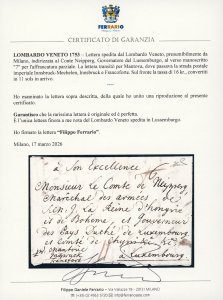 FERRARIO
CERTIFICATO DI GARANZIA
LOMBARDO VENETO 1753 – Lettera spedita dal Lombardo Veneto, presumibilmente da
Milano, indirizzata al Conte Neipperg, Governatore del Lussemburgo, al verso manoscritto
"7" per l'affrancatura parziale. La lettera transitò per Mantova, dove passava la strada postale
imperiale Innsbruck-Mechelen, Innsbruck e Francoforte. Sul fronte la tassa di 16 kr., convertiti
in 11 sols in arrivo.
Ho esaminato la lettera sopra descritta, della quale ho unito una riproduzione al presente
certificato.
Garantisco che la rarissima lettera è originale ed è perfetta.
È l'unica lettera finora a me nota del Lombardo Veneto spedita in Lussemburgo
Ho firmato la lettera "Filippo Ferrario".
Milano, 17 marzo 2026
A Son Excellence
Monsieur le Comte de Neipperg
Maréchal des armées de
la Reine d'Hongrie
et de Boheme, et Gouverneur
des Pays Duché de Luxembourg
et Comté de
à Luxembourg
Filippo Daniele Ferrario - Via Vallazze 75 - 20131 MILANO